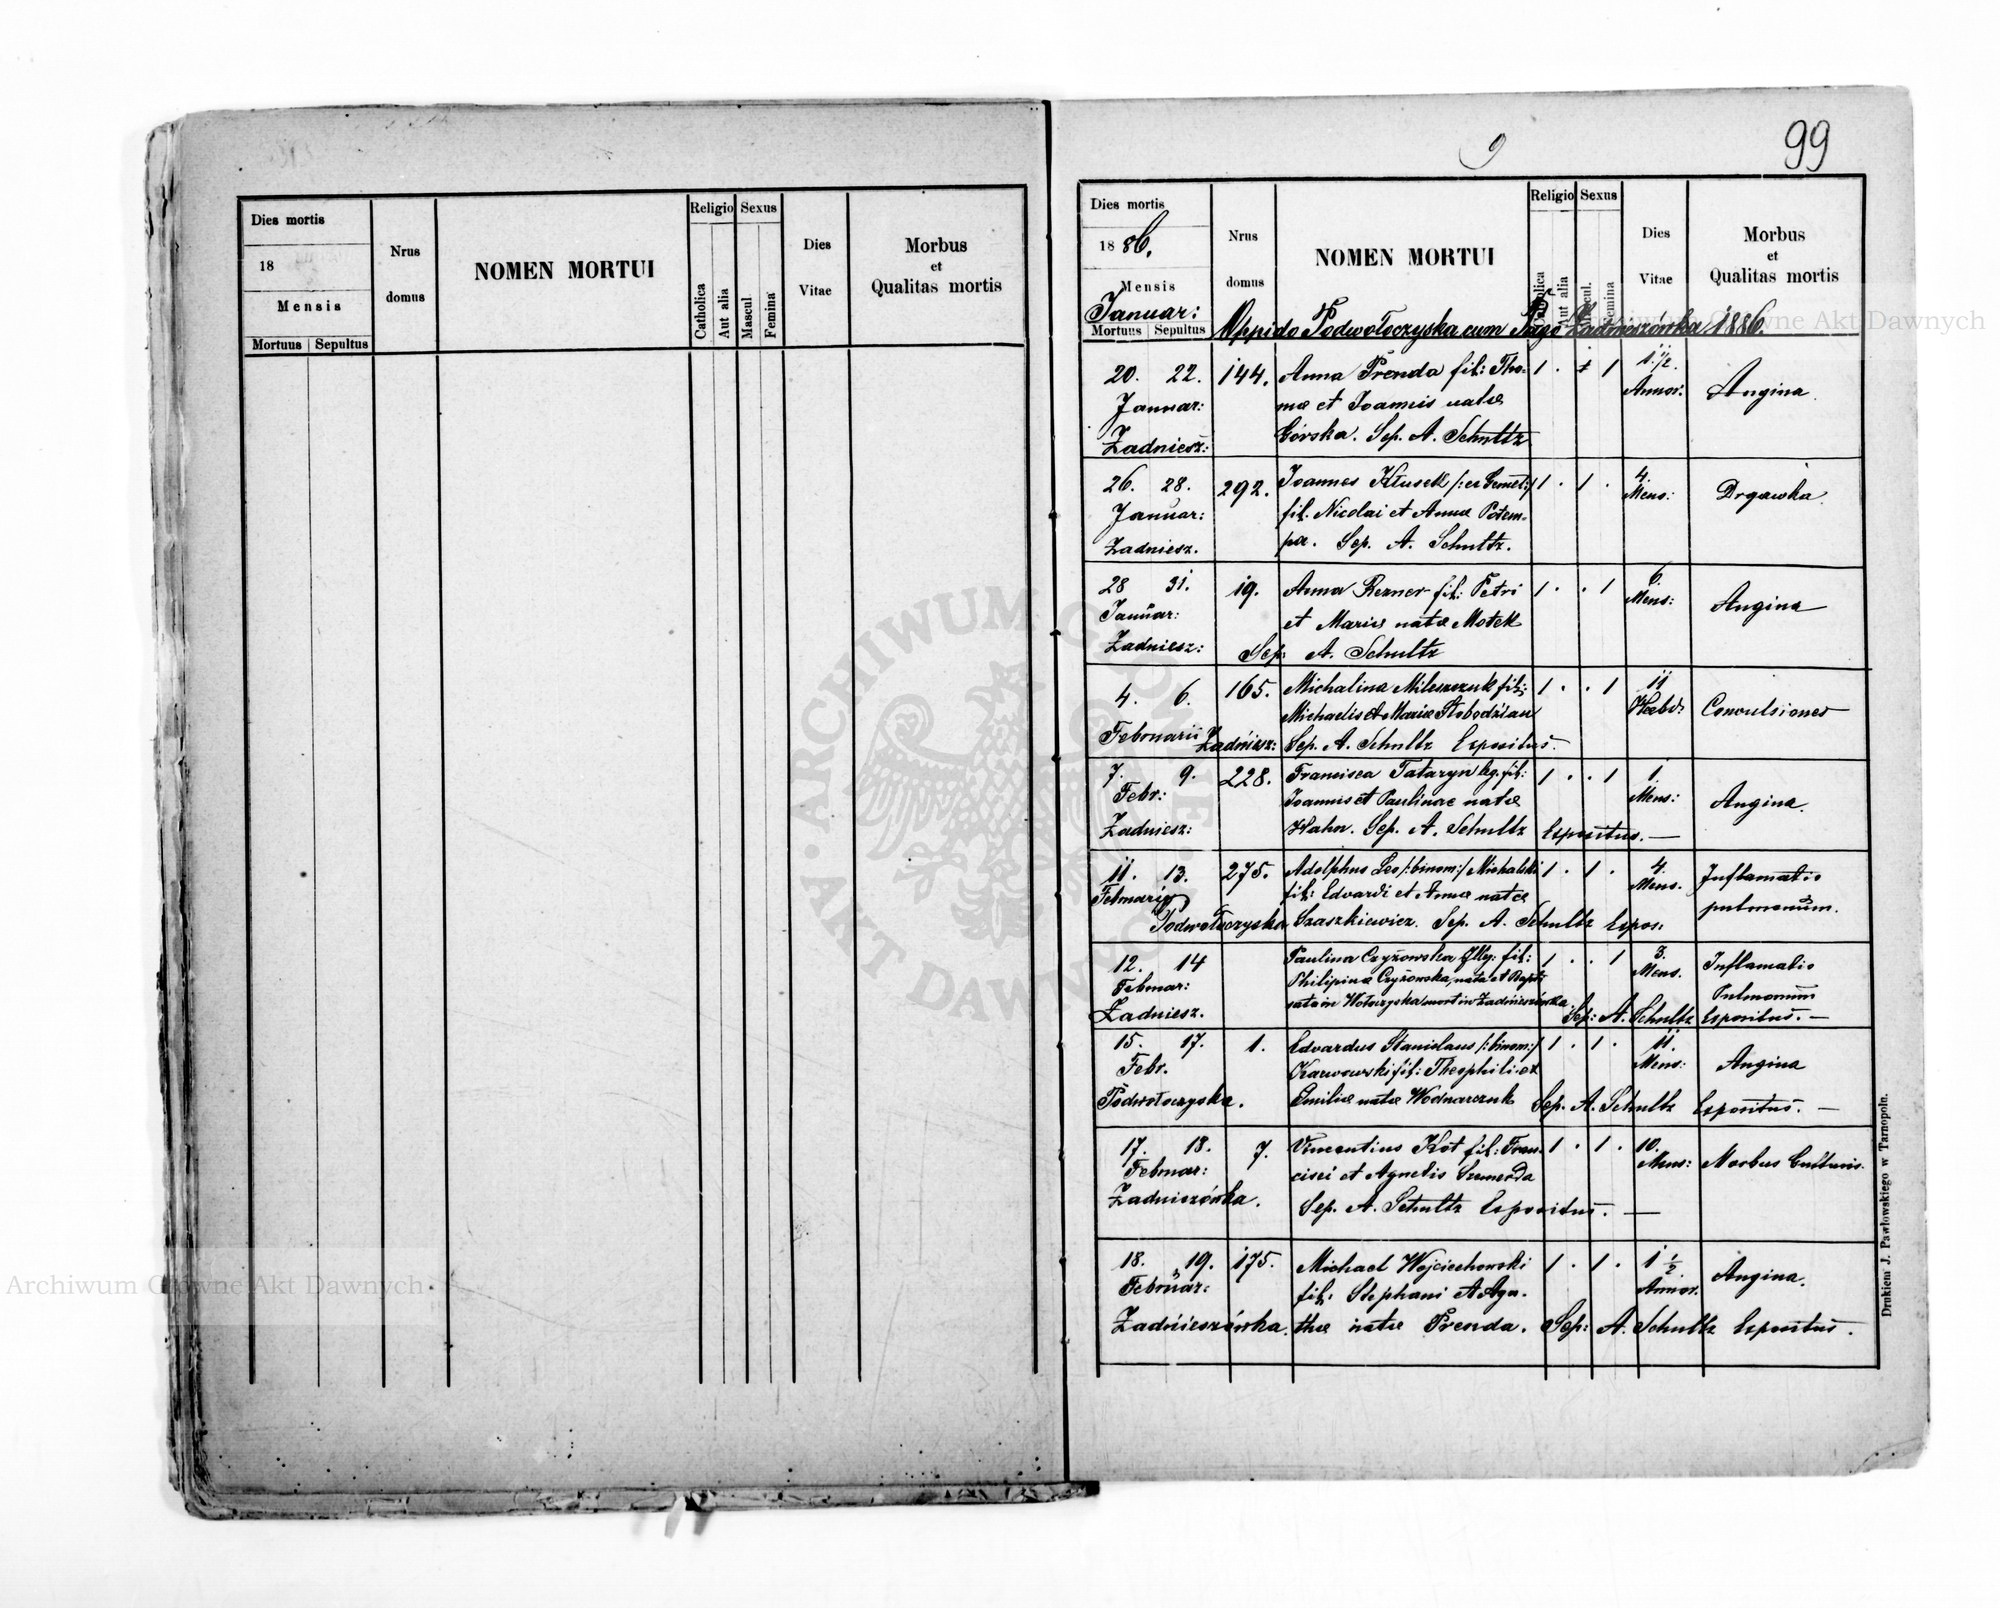 99
Dies mortis
18
Mensis
Mortuus Sepultus
Nrus domus
NOMEN MORTUI
Religio
Catholica
Aut alia
Sexus
Mascul.
Femina
Dies Vitae
Morbus
et
Qualitas mortis
Dies mortis
1886.
Mensis
Januar:
Mortuus Sepultus
Nrus domus
NOMEN MORTUI
Religio
Catholica
Aut alia
Sexus
Mascul.
Femina
Dies Vitae
Morbus
et
Qualitas mortis
Oppido Podwołoczyska cum Pago Zadnieszówka 1886.
20. 22. 144. Anna Prenda fil: Tho- 1 . 1 1 1/2. Angina
Januar: mae et Joannis natae Annor.
Zadniesz: Górska. Sep. A. Schultz
26. 28. 292. Joannes Kłusek /:ex Gemel:/ 1 . 1 . 4. Drgawka
Januar: fil. Nicolai et Annae Potem- Mens:
Zadniesz. pa. Sep. A. Schultz.
28 31. 19. Anna Rezner fil: Petri 1 . . 1 6. Angina
Januar: et Mariae natae Motek Mens:
Zadniesz: Sep: A. Schultz
4. 6. 165. Michalina Mileszczuk fil: 1 . . 1 11 Convulsiones
Michaelis et Mariae Słobodzian Hebd.
Februarii Zadniesz: Sep. A. Schultz Expositus.
7. 9. 228. Francisca Tataryn leg. fil: 1 . . 1 1. Angina.
Febr: Joannis et Paulinae natae Mens:
Zadniesz: Hahn. Sep. A. Schultz Expositus. —
11. 13. 275. Adolphus Leo /:binom:/ Michalski 1 . 1 . 4. Inflamatio
Februarii fil: Edvardi et Annae natae Mens. pulmonum.
Podwołoczyska Szaszkiewicz. Sep. A. Schultz Expos:
12. 14 Paulina Czyżowska Illeg: fil: 1 . . 1 3. Inflamatio
Februar: Philipina Czyżowska, nata et Bapti- Mens. Pulmonum
Zadniesz. sata in Wołoczyska, mort in Zadnieszówka. Sep: A. Schultz Expositus. —
15. 17. 1. Edvardus Stanislaus /:binom:/ 1 . 1 . 11. Angina
Febr. Karwowski fil: Theophili et Mens:
Podwołoczyska. Emiliae natae Wodnarczuk Sep. A. Schultz Expositus. —
17. 18. 7. Vincentius Kot fil: Fran- 1 . 1 . 10. Morbus Gutturis.
Februar: cisci et Agnetis Szmerda Mens:
Zadnieszówka. Sep. A. Schultz Expositus. —
18. 19. 175. Michael Wojciechowski 1 . 1 . 1 1/2 Angina.
Februar: fil: Stephani et Aga- Annor.
Zadnieszówka. thae natae Prenda. Sep: A. Schultz Expositus.
Drukiem J. Pawłowskiego w Tarnopolu.
ARCHIWUM GŁÓWNE AKT DAWNYCH
Archiwum Główne Akt Dawnych
Archiwum Główne Akt Dawnych